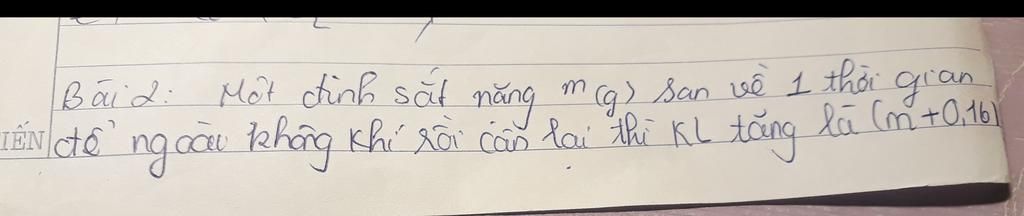 Bài 2: Một đinh sắt nặng m (g) sau về 1 thời gian
IẾN để ngoài không khí rồi cân lại thì KL tăng là (m+0,16)